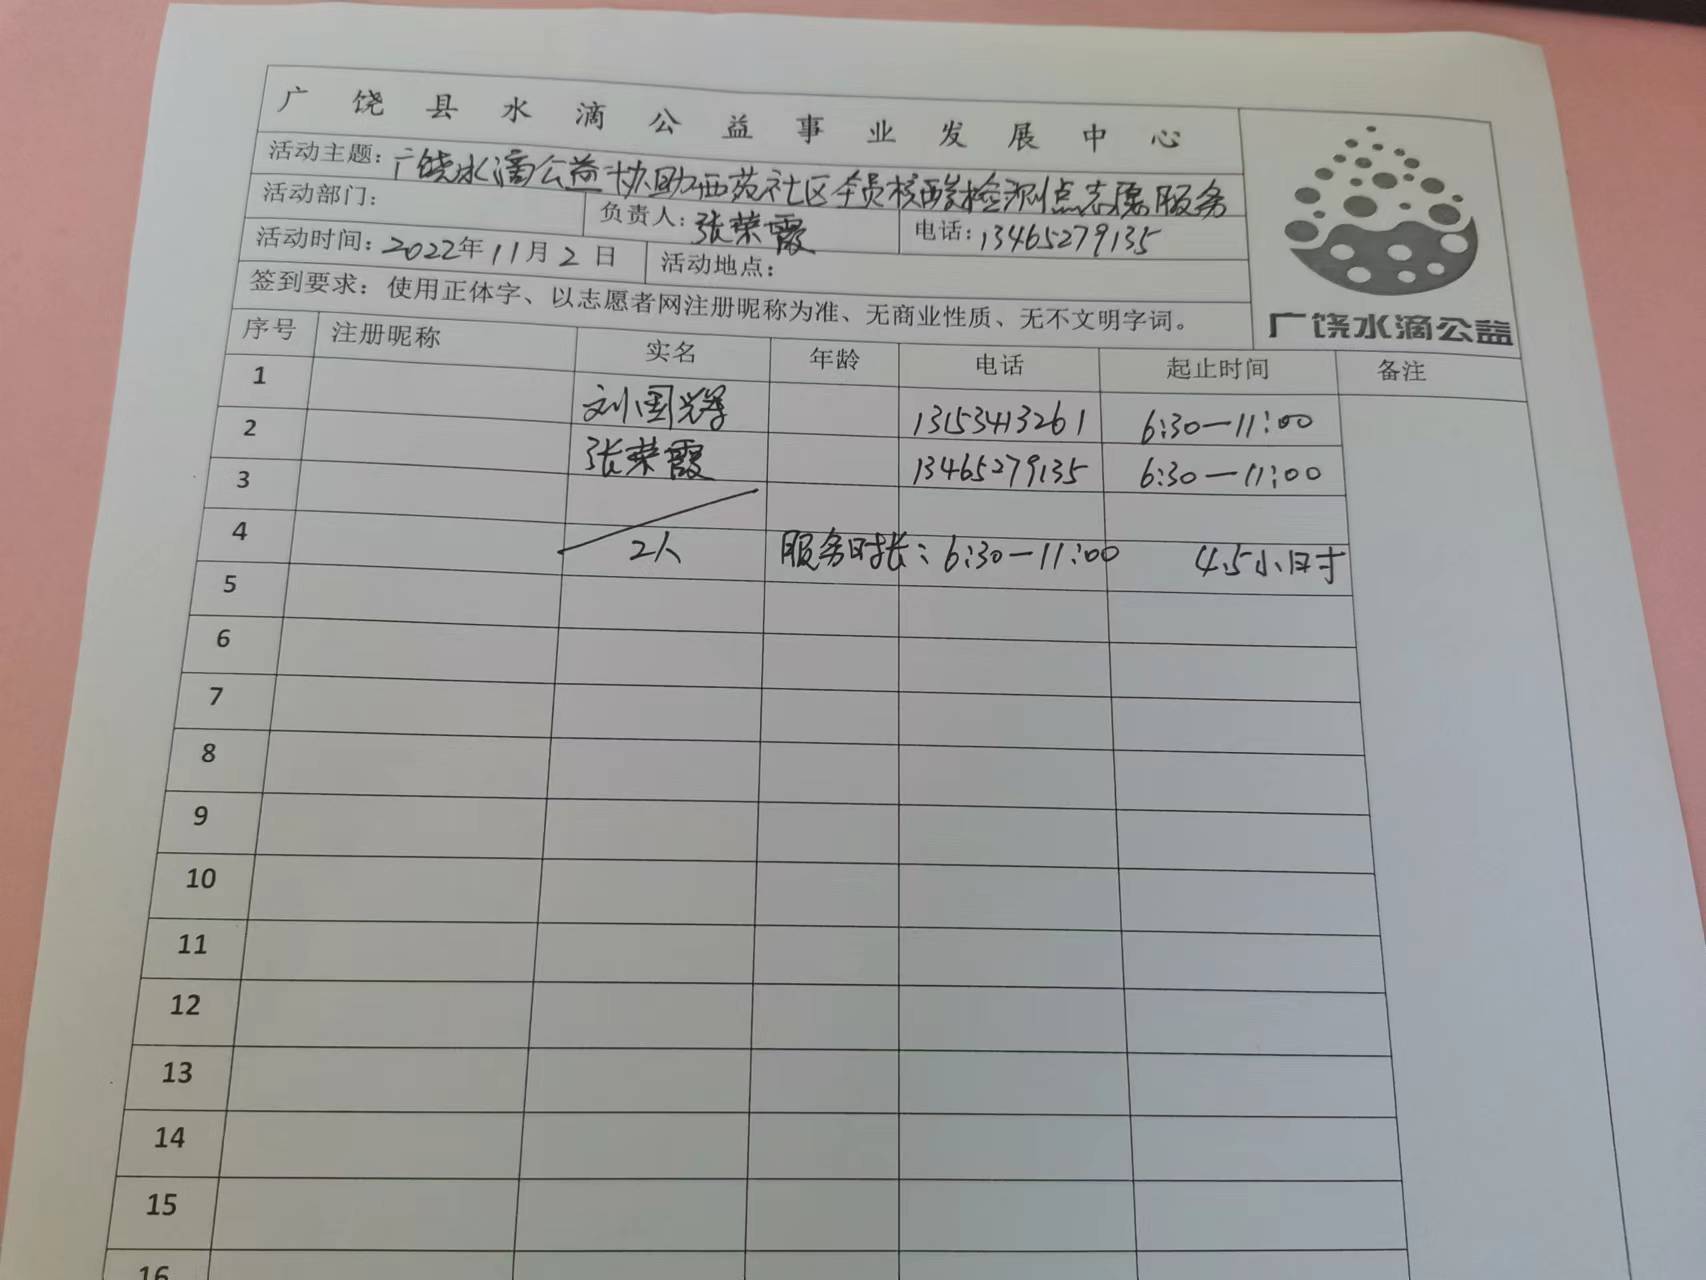 广饶县水滴公益事业发展中心
活动主题：广饶水滴公益协助西苑社区全员核酸检测点志愿服务
活动部门： 负责人：张荣霞 电话：13465279135
活动时间：2022年11月2日 活动地点：
签到要求：使用正体字、以志愿者网注册昵称为准、无商业性质、无不文明字词。
广饶水滴公益
序号 注册昵称 实名 年龄 电话 起止时间 备注
1 刘国辉 13153413261 6:30—11:00
2 张荣霞 13465279135 6:30—11:00
3
4 2人 服务时长：6:30—11:00 4.5小时
5
6
7
8
9
10
11
12
13
14
15
16